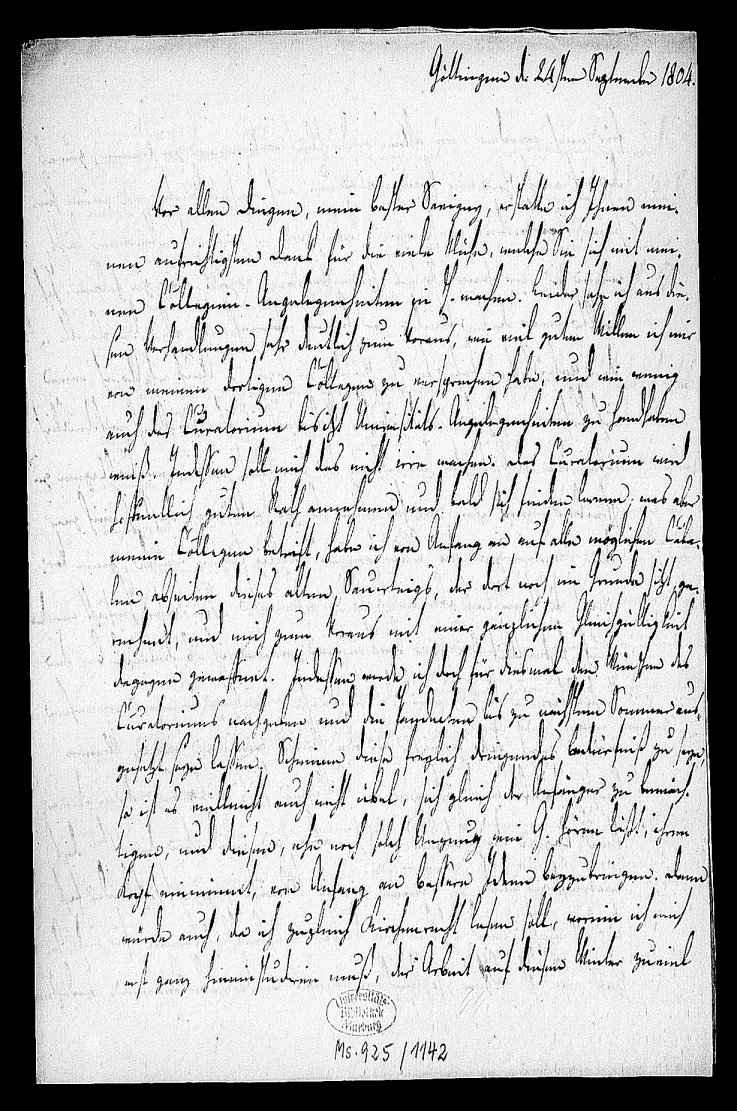 Göttingen d. 24sten September 1804.
Vor allen Dingen, mein bester Savigny, erstatte ich Ihnen mei-
nen aufrichtigsten Dank für die viele Mühe, welche Sie sich mit mei-
nen Collegien-Angelegenheiten in H. machen. Leider sehe ich aus die-
sen Verhandlungen sehr deutlich zum Voraus, wie viel guten Willen ich mir
von meinen dortigen Collegen zu versprechen habe, und wie wenig
auch das Curatorium bis jetzt Universitäts-Angelegenheiten zu handhaben
weiß. Indessen soll mich das nicht irre machen. Das Curatorium wird
hoffentlich guten Rath annehmen und bald sich finden lernen; was aber
meine Collegen betrifft, habe ich von Anfang an auf alle möglichen Caba-
len abseiten dieses alten Sauerteigs, der dort noch im Grunde sitzt, ge-
rechnet, und mich zum Voraus mit einer gänzlichen Gleichgültigkeit
dagegen gewaffnet. Indessen werde ich doch für diesmal den Wünschen des
Curatoriums nachgeben und die Pandecten bis zu nächstem Sommer aus-
gesetzt seyn lassen. Scheinen diese freylich dringendes Bedürfniß zu seyn,
so ist es vielleicht auch nicht übel, sich gleich der Anfänger zu bemäch-
tigen, und diesen, ehe noch solch Unzeug wie G. hören läßt, ihren
Kopf einnimmt, von Anfang an bessere Ideen beyzubringen. Dann
würde auch, da ich zugleich Kirchenrecht lesen soll, worin ich mich
erst ganz hineinstudieren muß, die Arbeit auf diesen Winter zuviel
Universitäts-
Bibliothek
Marburg
Ms. 925/1142